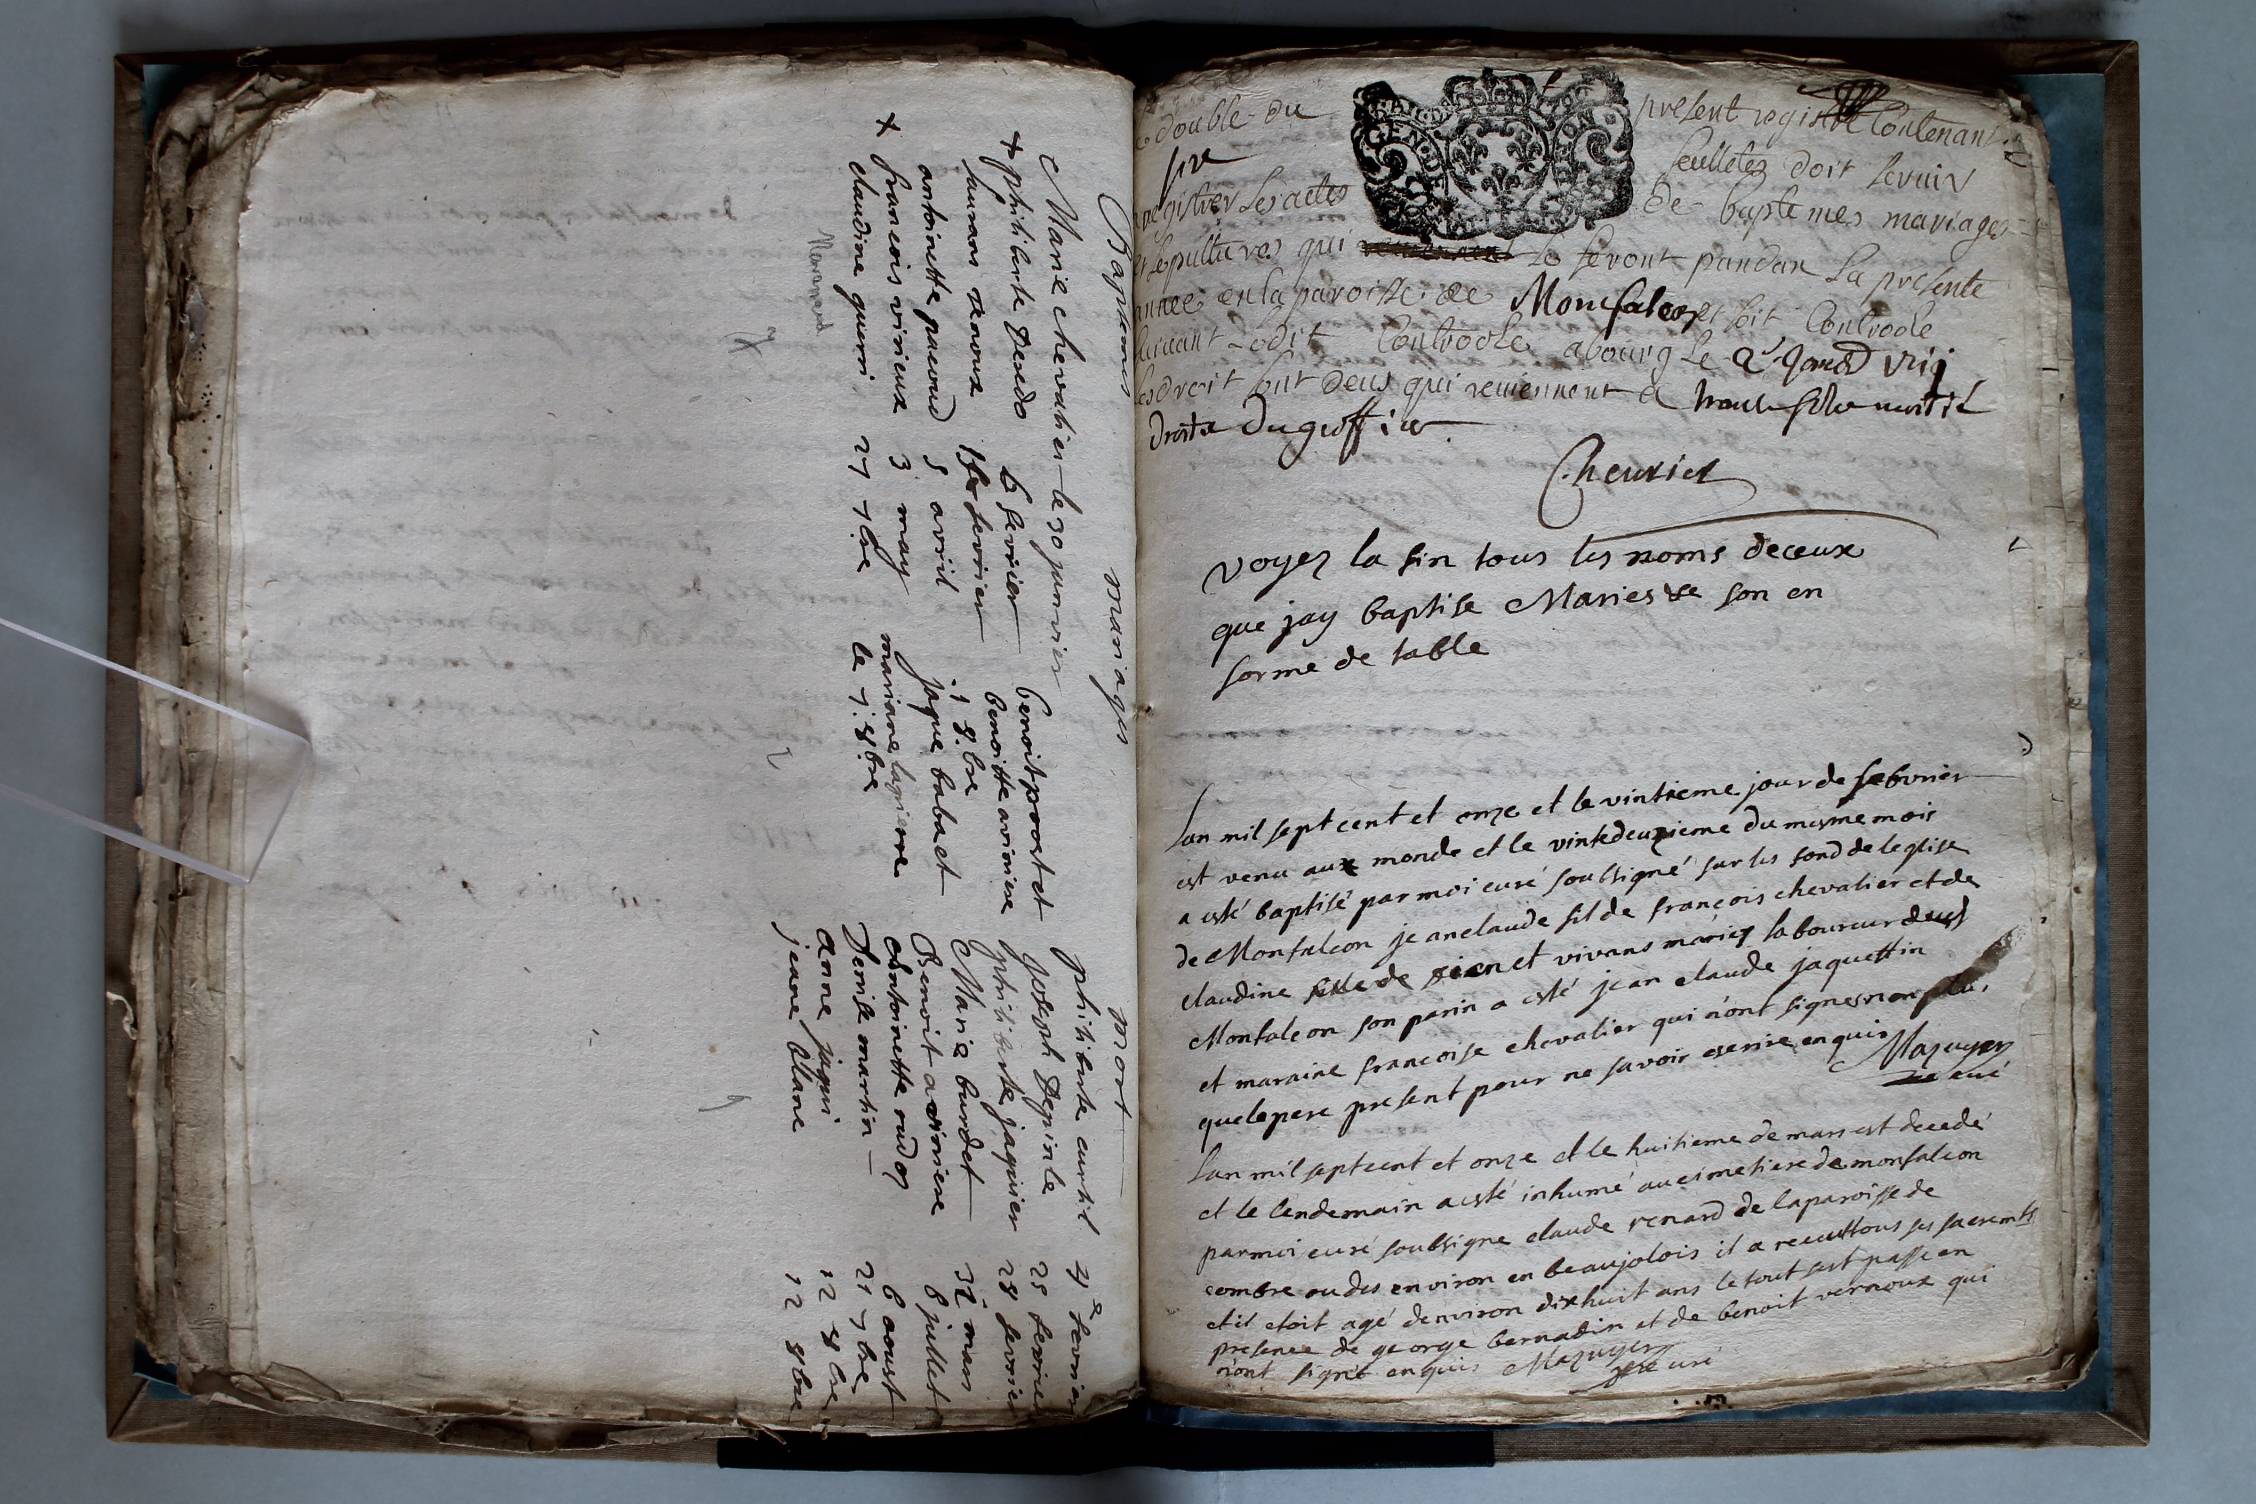 Baptemes mariages mort
Marie chevalier le 30 janvier
philiberte Dendo 6 fevrier
laurans renoux 15 fevrier
antoinette pacoud 5 avril
francois virieux 3 may
claudine guerri 27 7bre
benoit provost et
benoitte aviniere
1 9.bre
jaque babaet
mariane lagrierre
le 7. 9bre
philiberte curtil 4e fevrier
Joseph Depinle 25 fevrier
philiberte jaquier 28 fevrier
Marie burdet 31 mars
Benoit aviniere 6 juillet
Antoinette 6 aoust
Denise martin 21 7bre
Anne jaqui 12 8bre
jeane blanc 12 9bre
double du present registre Contenant
six feulletes doit servir
enregistrer les actes de baptemes mariages
et sepultures qui se feront pandan La presente
annee en la paroisse de Monfalcon et soit Controole
suivant Ledit Controole abourg le
Les droit sont deus qui reviennent a moitié
Droits Du greffier
Cheurier
voyez la fin tous les noms de ceux
que jay baptise Maries se son en
forme de table
Lan mil sept cent et onze et le vintieme jour de febvrier
est venu aux monde et le vintedeuzieme du mesme mois
a esté baptisé par moi curé soubsigné sur les fond de leglise
de Monfalcon jean claude fil de françois chevalier et de
claudine fille de vivans mariez laboureur dud
Monfalcon son parin a esté jean claude jaquettin
et maraine francoise chevalier qui n'ont signes non plus
que le pere present pour ne savoir escrire enquis Mazuyer
curé
Lan mil sept cent et onze et le huitieme de mars est decedé
et le lendemain a esté inhumé au cimetiere de monfalcon
par moi curé soubsigne claude renard de la paroisse de
combre ou des environ en beaujolois il a receut tous ses sacremts
et il etoit agé denviron dixhuit ans le tout sest passe en
presence de george bernadin et de benoit vernoux qui
n'ont signé enquis Mazuyer
curé